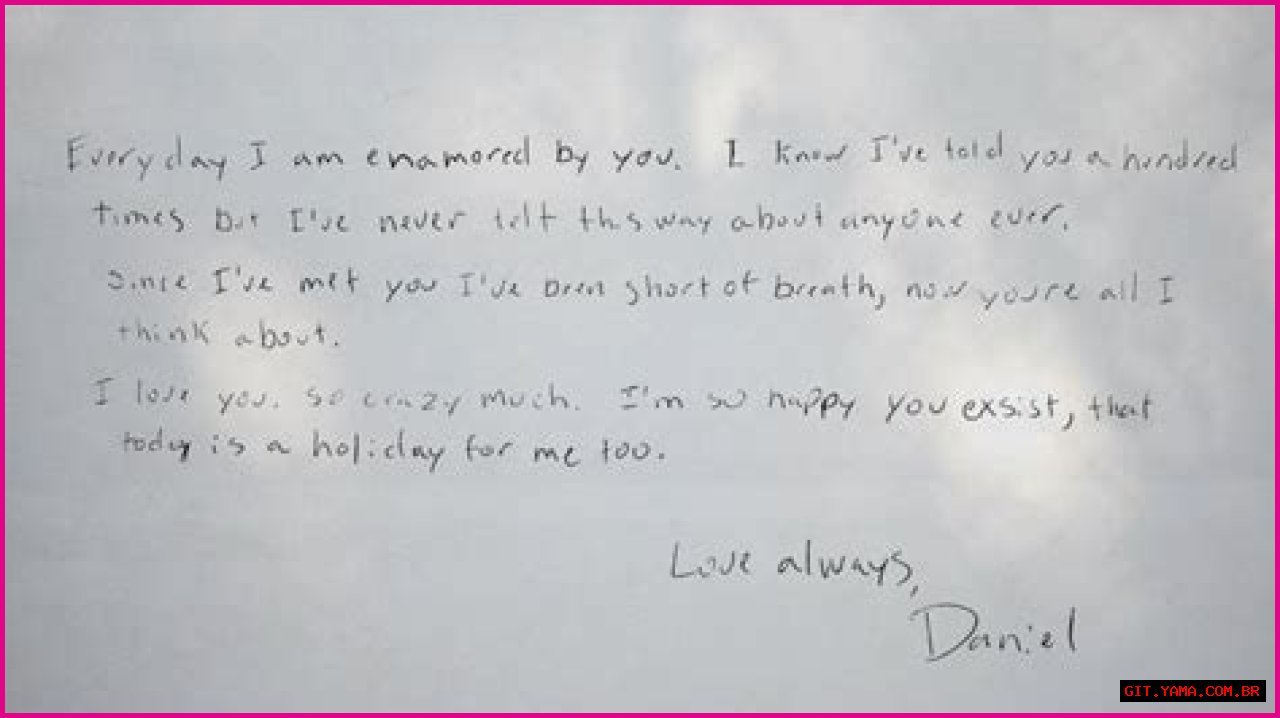 Everyday I am enamored by you. I know I've told you a hundred
times but I've never felt this way about anyone ever.
Since I've met you I've been short of breath, now you're all I
think about.
I love you. so crazy much. I'm so happy you exsist, that
today is a holiday for me too.
Love always,
Daniel
GIT.YAMA.COM.BR